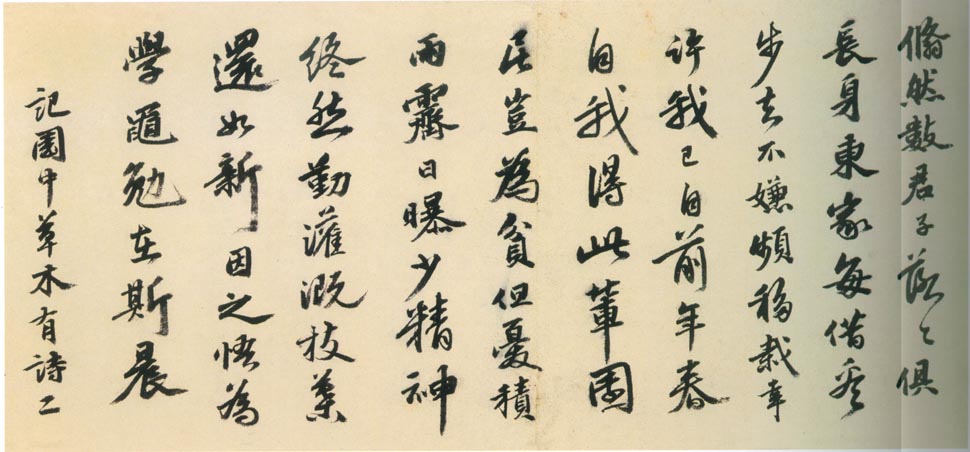 翛然數君子落々俱
長身東家每借看
步去不嫌頻移栽幸
許我已自前年春
自我得此輩園
居豈為貧但憂積
雨霽日曝少精神
終然勤灌溉枝葉
還如新因之悟為
學黽勉在斯晨
記園中草木有詩二